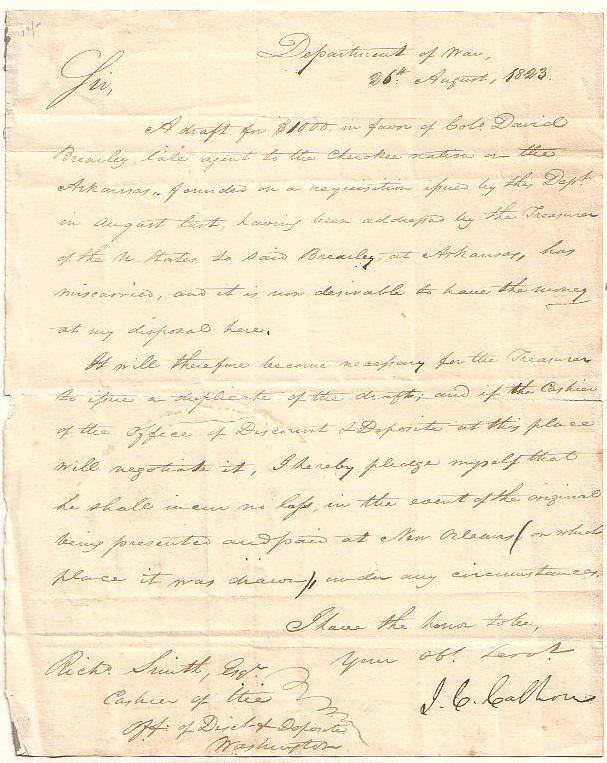 Department of War,
26th August, 1823.
Sir,
A draft for $1000, in favor of Colo. David
Brearley, late agent to the Cherokee nation on the
Arkansas, founded on a requisition issued by this Dept.
in August last, having been addressed by the Treasurer
of the U. States to said Brearley, at Arkansas, has
miscarried, and it is now desirable to have the money
at my disposal here.
It will therefore become necessary for the Treasurer
to issue a duplicate of the draft; and if the Cashier
of the Office of Discount & Deposite at this place
will negotiate it, I hereby pledge myself that
he shall incur no loss, in the event of the original
being presented and paid at New Orleans (on which
place it was drawn), under any circumstances.
I have the honor to be,
Your Obt. Servt.
J. C. Calhoun
Richd. Smith, Esqr.
Cashier of the
Off. of Disct. & Deposite
Washington